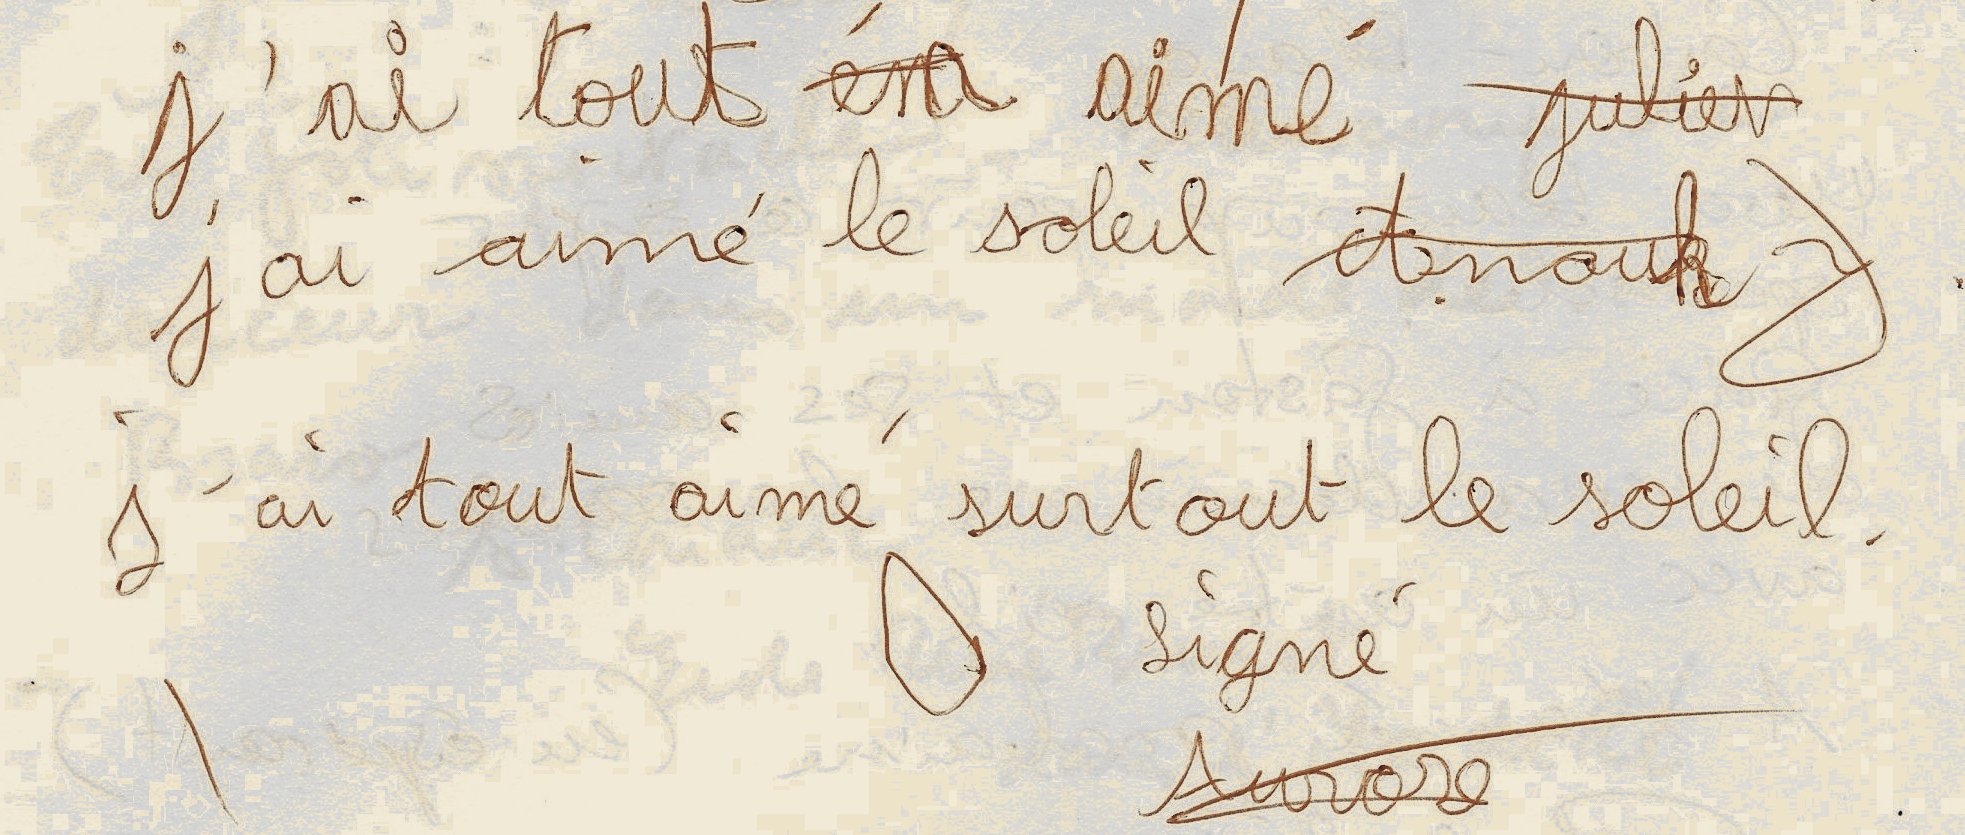 j'ai tout en aimé julien
j'ai aimé le soleil Anouk
j'ai tout aimé surtout le soleil.
signé
Aurore